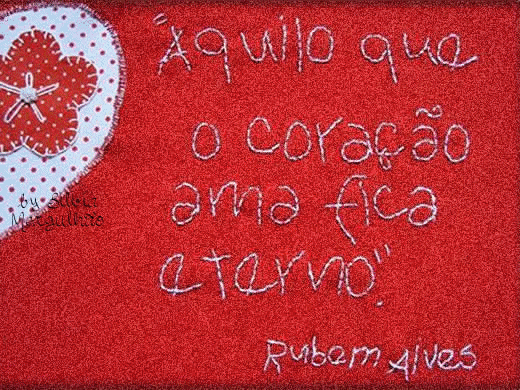 "Aquilo que
o coração
ama fica
eterno".
Rubem Alves
by Silvia
Mergulhão